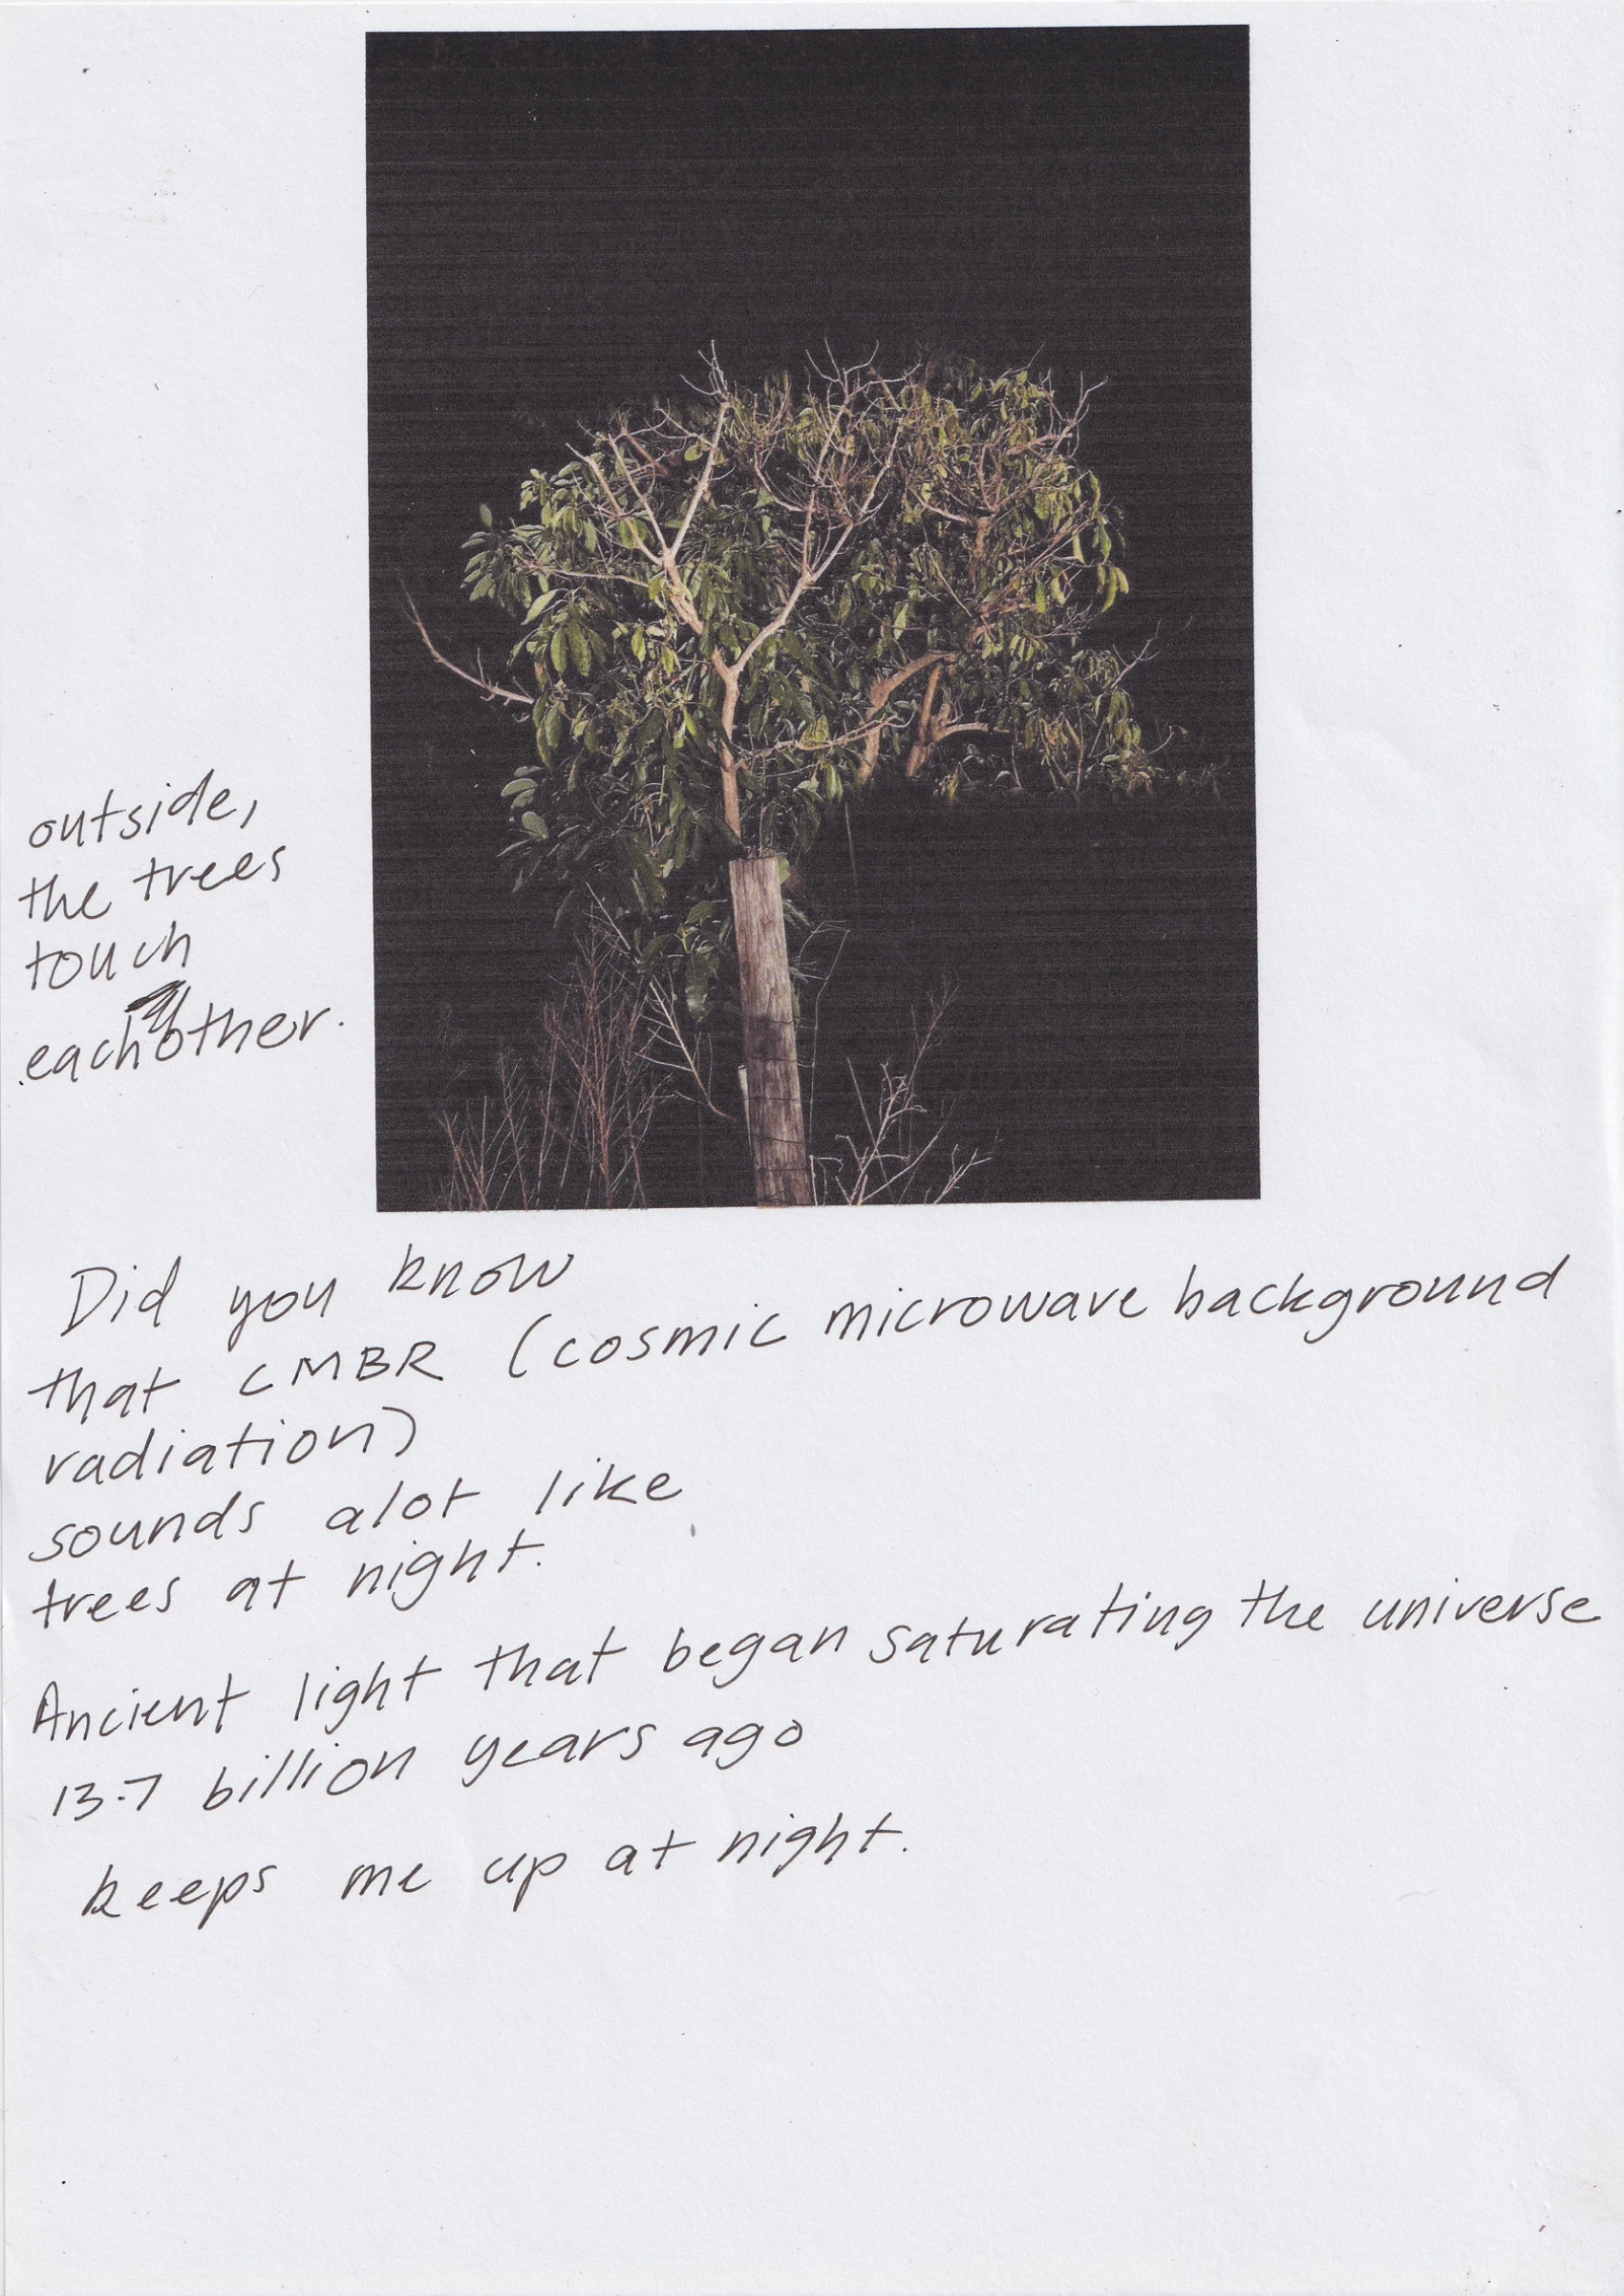 outside,
the trees
touch
eachother.
Did you know
that CMBR (cosmic microwave background
radiation)
sounds alot like
trees at night.
Ancient light that began saturating the universe
13.7 billion years ago
keeps me up at night.